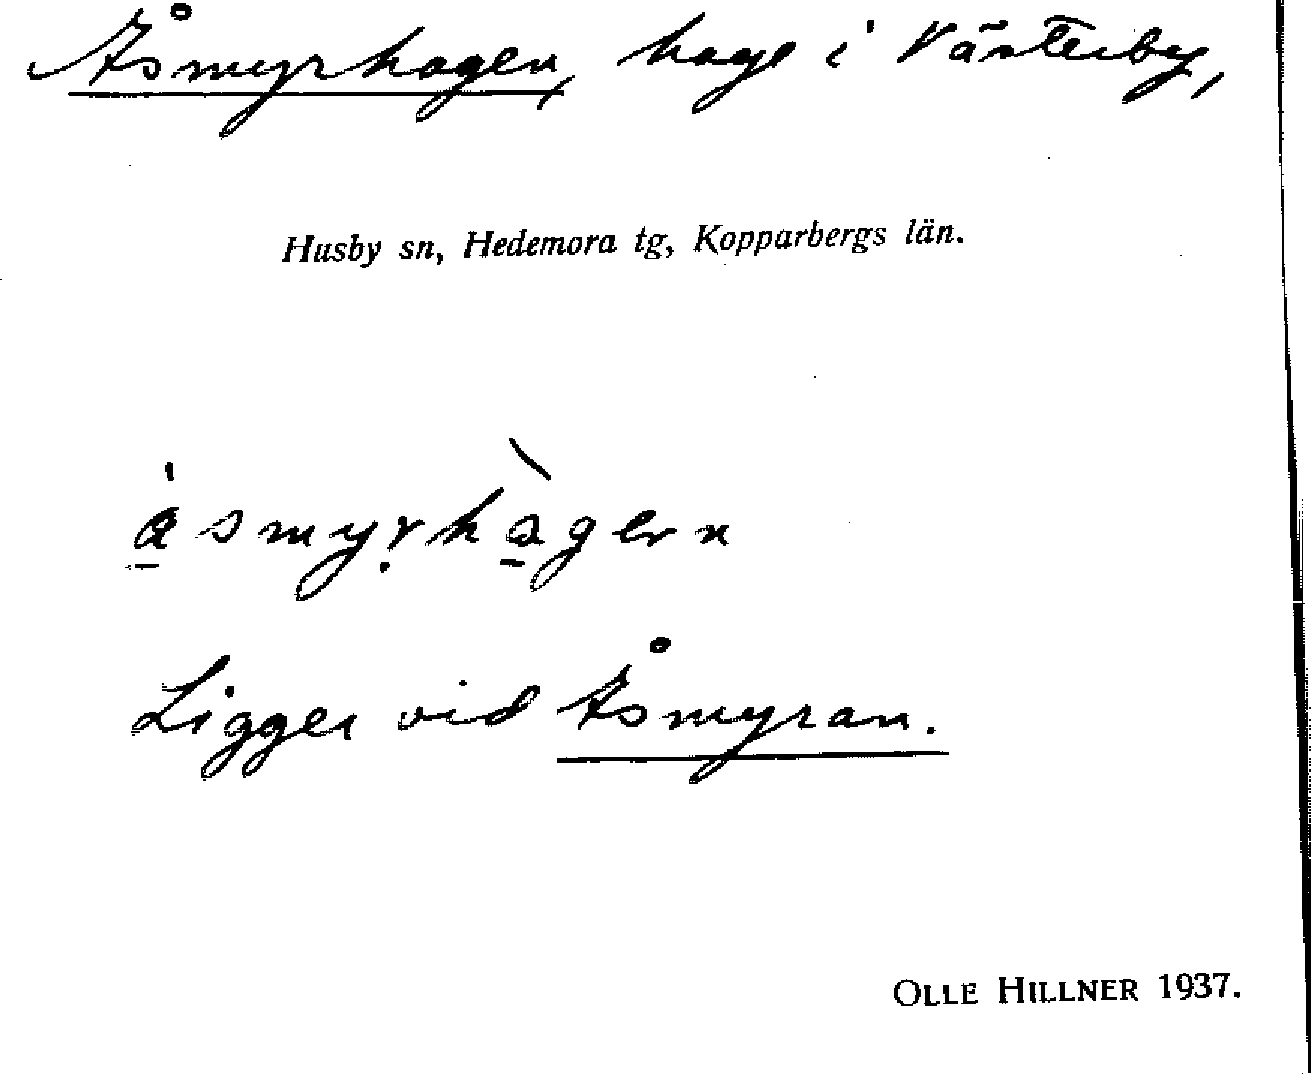 Åsmyrhagen, hage i Västerby,
Husby sn, Hedemora tg, Kopparbergs län.
Ligger vid Åsmyran.
OLLE HILLNER 1937.